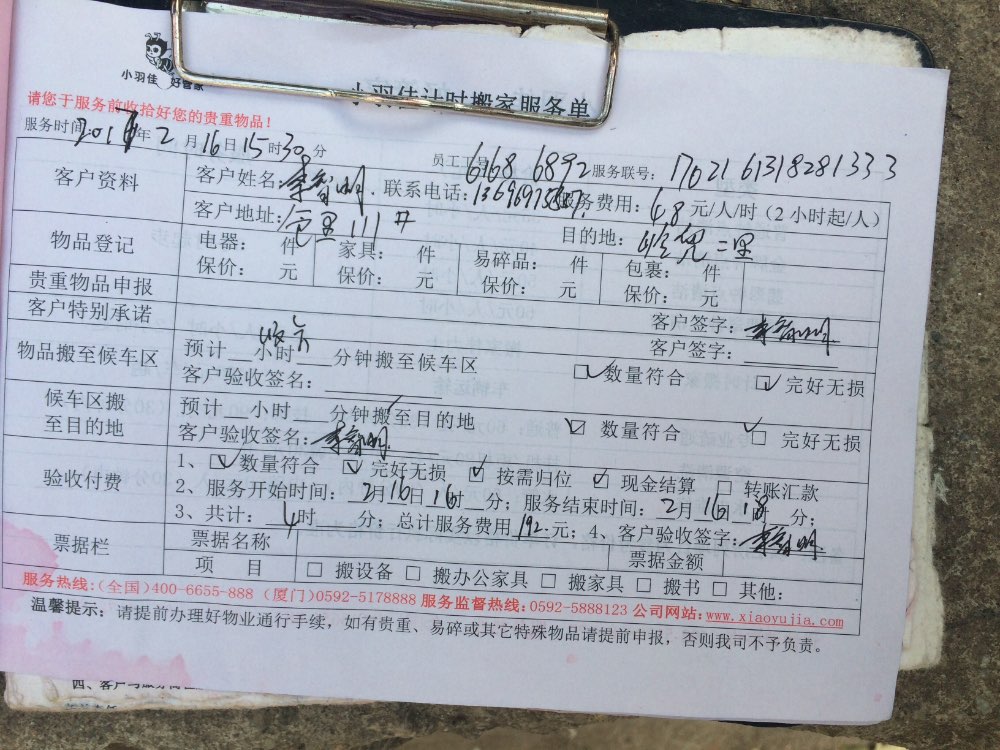 小羽佳 好管家
小羽佳计时搬家服务单
请您于服务前收拾好您的贵重物品!
服务时间 2017年2月16日15时30分 员工工号 6168 6892 服务联号: 17021 6131828 1333
客户资料 客户姓名: 李智明. 联系电话: 服务费用: 48元/人/时(2小时起/人)
客户地址: 里111# 目的地: 二里
物品登记 电器: 件 家具: 件 易碎品: 件 包裹: 件
保价: 元 保价: 元 保价: 元 保价: 元
贵重物品申报
客户特别承诺 客户签字: 李智明
物品搬至候车区 预计 小时 分钟搬至候车区 客户签字:
客户验收签名: ☑数量符合 ☑完好无损
候车区搬至目的地 预计 小时 分钟搬至目的地
客户验收签名: 李智明 ☑数量符合 ☑完好无损
验收付费 1、☑数量符合 ☑完好无损 ☑按需归位 ☑现金结算 □转账汇款
2、服务开始时间: 2月16日16时 分; 服务结束时间: 2月16日18时 分;
3、共计: 4时 分; 总计服务费用192元; 4、客户验收签字: 李智明
票据栏 票据名称 票据金额
项 目 □搬设备 □搬办公家具 □搬家具 □搬书 □其他:
服务热线:(全国)400-6655-888 (厦门)0592-5178888 服务监督热线:0592-5888123 公司网站:www.xiaoyujia.com
温馨提示: 请提前办理好物业通行手续,如有贵重、易碎或其它特殊物品请提前申报,否则我司不予负责。